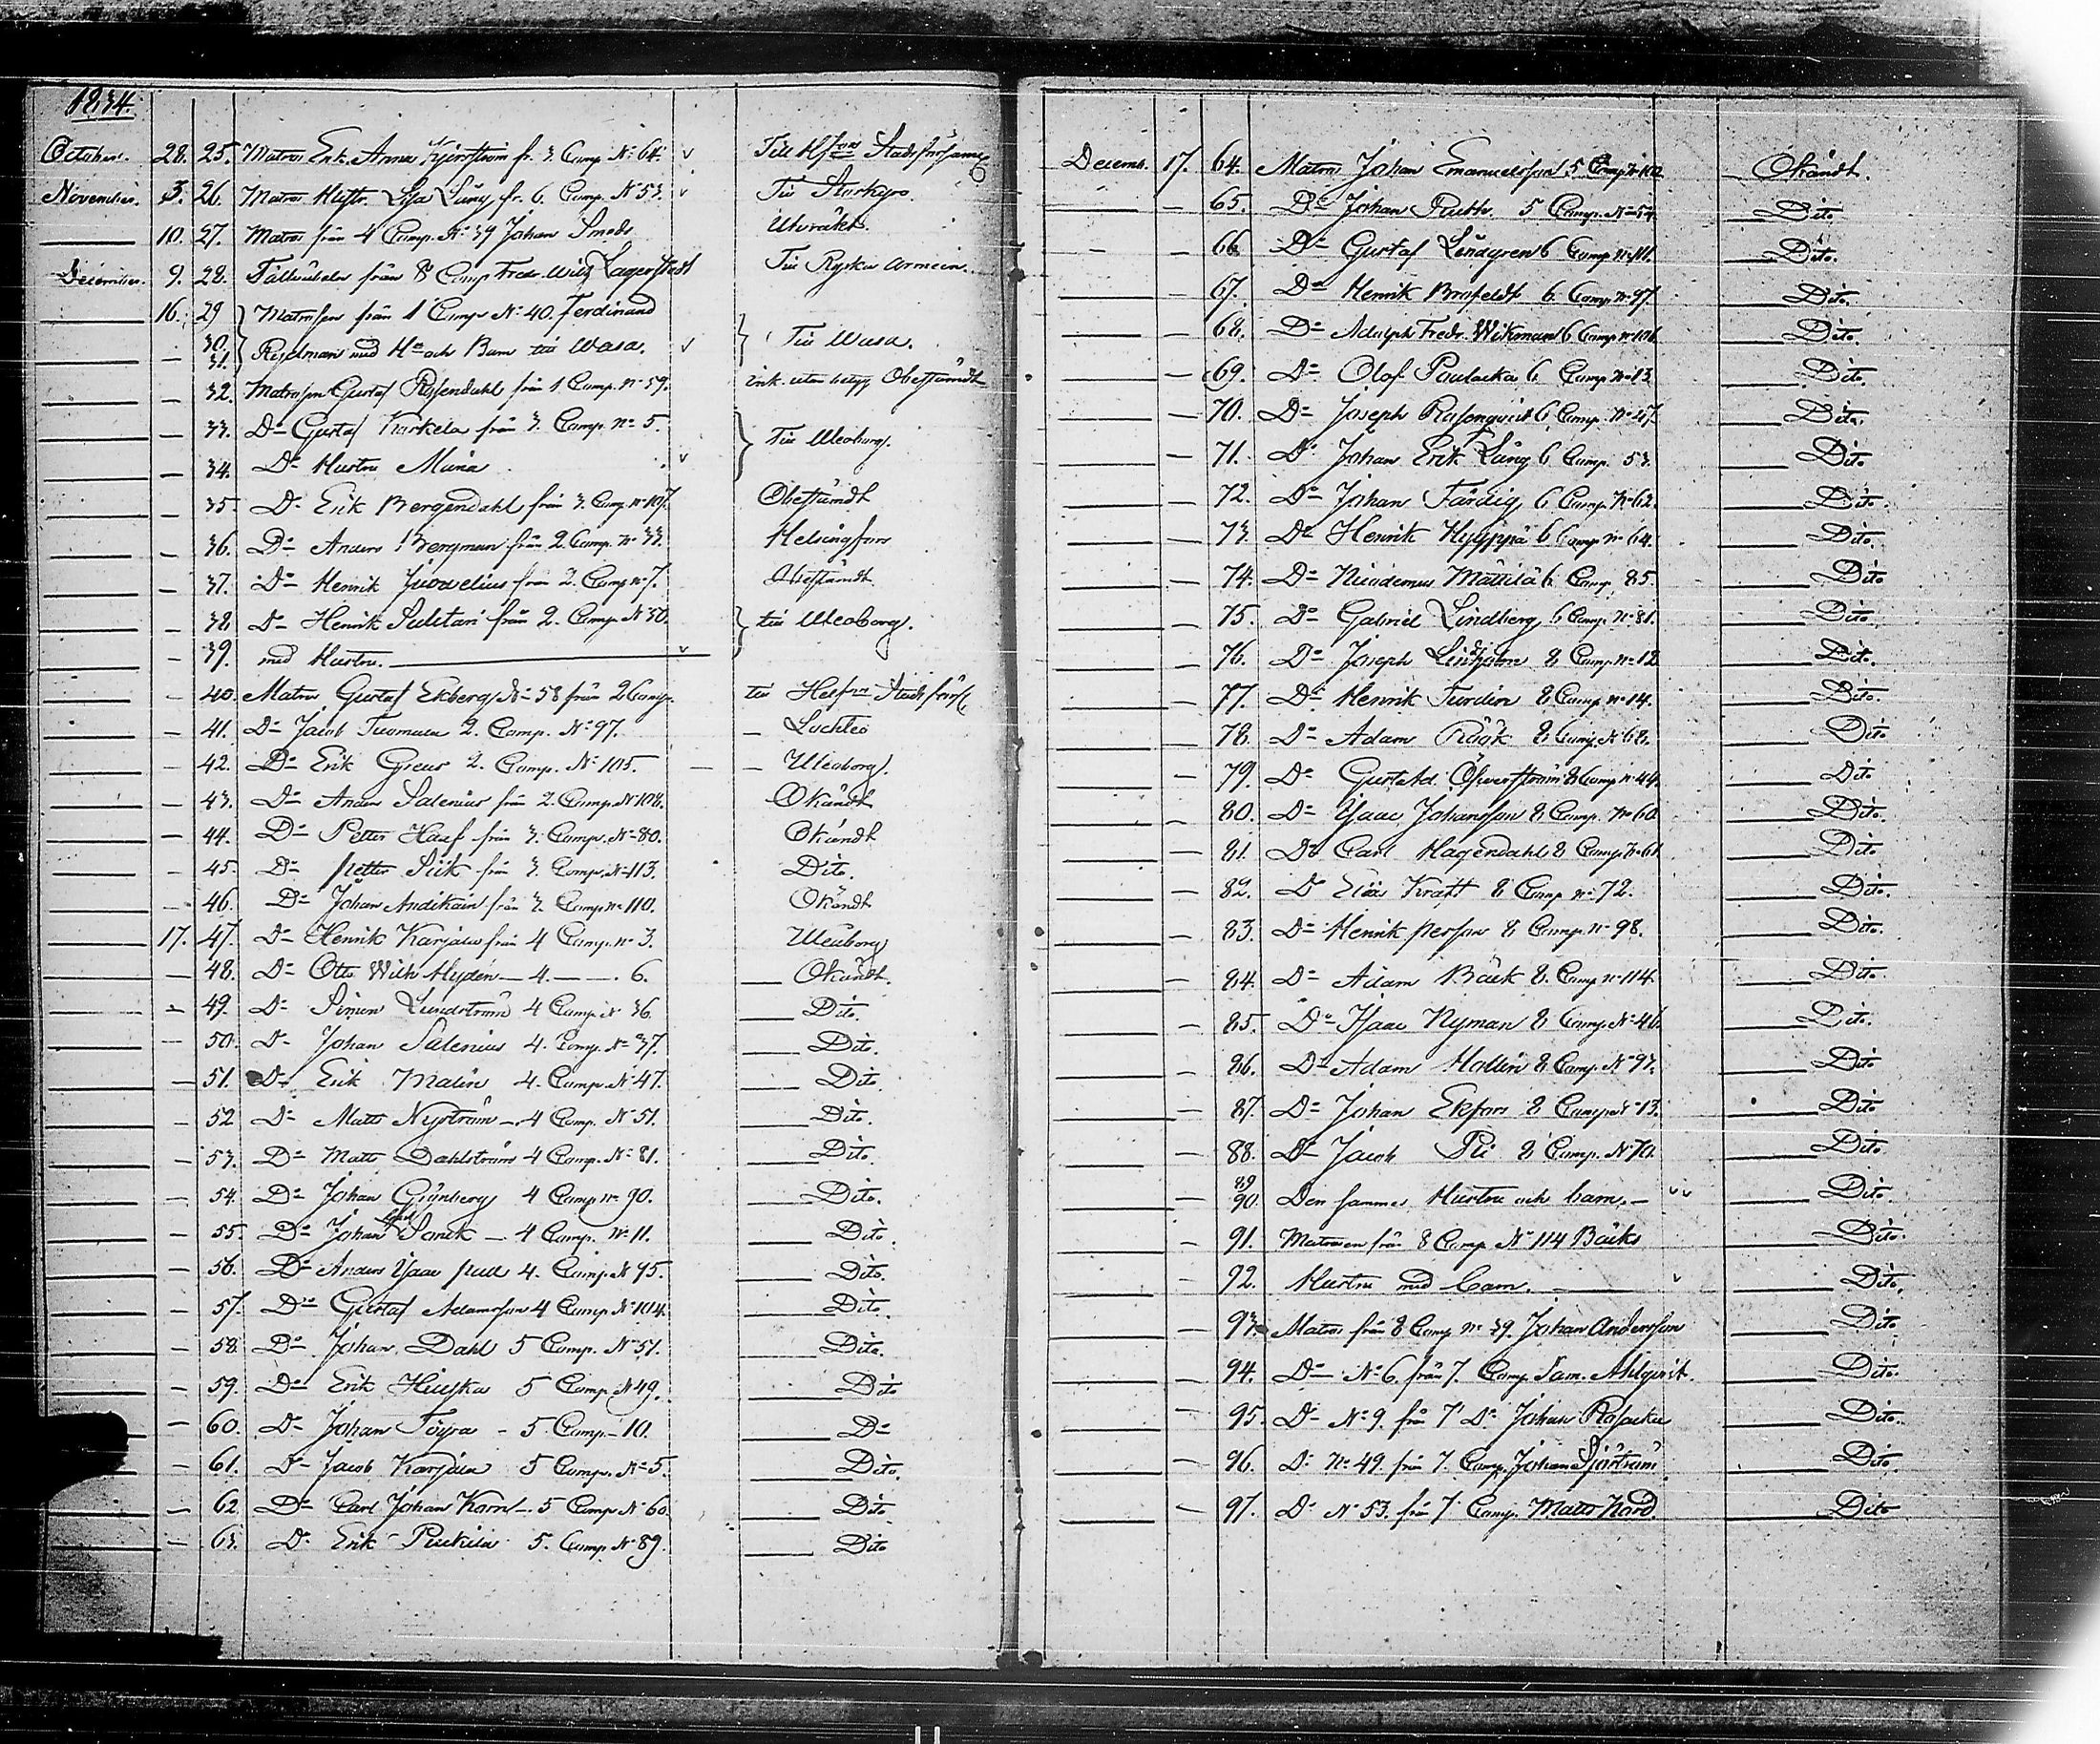 1834.
October. 28. 25. Matros Enk. Anna fr. 3. Comp. No 64. v Till Hfors
November. 3. 26. Matros Hustr. Lisa Lång fr. 6. Comp. No 53. v Till Storkyro.
10. 27. Matros från 4 Comp. No 39 Johan Smeds Utvräkt.
December. 9. 28. från 8 Comp Fredr. Wilh Lagerstedt Till Ryska Armeen.
16. 29 Matrosen från 1 Comp No 40. Ferdinand
30. 31. med Hu och Barn till Wasa. v Till Wasa.
32. Matrosen Gustaf Rosendahl från 1 Comp. no 59. utan Obestämdt
33. Do Gustaf Karkela från 3. Comp. no 5. Till Uleaborg.
34. Do Hustru Maria v
35. Do Erik Bergendahl från 3. Comp no 107. Obestämdt
36. Do Anders Bergman från 2. Comp. No 33. Helsingfors
37. Do Henrik Juvelius från 2. Comp no 7. Obestämdt
38 Do Henrik Sulitari från 2. Comp No 50. till Uleaborg.
39. med Hustru. v
40. Matros Gustaf Ekberg No 58 från 2 Comp. till
41. Do Jacob Tuomala 2. Comp. No 97. Lochteo
42. Do Erik Greus 2. Comp. No 105. Uleaborg.
43. Do Anders Salenius från 2. Comp No 108. Okändt
44. Do Petter Haaf från 3. Comp. No 80. Okändt
45. Do Petter Siik från 3. Comp. No 113. Dito.
46. Do Johan Andikain från 3. Comp no 110. Okändt
17. 47. Do Henrik Karjala från 4 Comp. no 3. Uleåborg
48. Do Otto Wilh Hydén 4 6. Okändt.
49. Do Simon Lundström 4 Comp No 36. Dito.
50. Do Johan Salenius 4. Comp. No 37. Dito.
51. Do Erik Malin 4. Comp. No 47. Dito
52 Do Matts Nyström 4 Comp. No 51. Dito.
53. Do Matts Dahlström 4 Comp. No 81. Dito.
54. Do Johan Grönberg 4 Comp no 90. Dito.
55. Do Johan 4 Comp. No 11. Dito.
56. Do Anders Isaac 4. Comp. No 95. Dito.
57. Do Gustaf Adamsson 4 Comp No 104. Dito.
58. Do Johan Dahl 5 Comp. No 51. Dito.
59. Do Erik Huiska 5 Comp No 49. Dito
60. Do Johan Töyra 5 Comp 10. Do
61. Do Jacob Karjala 5 Comp. No 5. Dito.
62. Do Carl Johan Korn 5 Comp No 60. Dito
63. Do Erik 5. Comp No 89. Dito
Decemb. 17. 64. Matros Johan Emanuelsson 5 Comp No 102 Okändt.
65. Do Johan Ruth 5 Comp. No 54. Dito
66 Do Gustaf Lindgren 6 Comp no 111. Dito.
67. Do Henrik Brofeldt 6. Comp. no 97. Dito.
68. Do Adolph Fredr. Wikman 6 Comp no 106 Dito
69. Do Olof Paulacka 6 Comp. No 13. Dito.
70. Do Joseph Rosenqvist 6 Comp. No 47. Dito.
71. Do Johan Erik Lång 6 Comp. 53. Dito
72. Do Johan Färdig 6 Comp. No 62. Dito.
73 Do Henrik Hyyppä 6 Comp no 64. Dito.
74. Do Nicodemus Mattila 6. Comp. 85. Dito
75. Do Gabriel Lindberg 6 Comp. No 81. Dito.
76. Do Joseph Lindholm 8 Comp no 12 Dito.
77. Do Henrik Turdin 8 Comp no 14. Dito.
78. Do Adam Rååk 8 Comp. No 68. Dito
79. Do Gust. Ad. Öfverström 8 Comp no 44. Dito
80. Do Isaac Johansson 8 Comp. No 60 Dito.
81 Do Carl Hagendahl 8 Comp. No 61 Dito
82. Do Elias Kraft 8 Comp no 72. Dito.
83. Do Henrik Persson 8 Comp. no 98. Dito.
84. Do Adam Bäck 8. Comp no 114. Dito
85. Do Isaac Nyman 8 Comp. No 46. Dito.
86. Do Adam Hollin 8 Comp. No 93. Dito
87. Do Johan Ekfors 8 Comp no 13. Dito
88. Do Jacob 8 Comp. No 70. Dito
89 90. Den sammes Hustru och barn. v v Dito.
91. Matrosen från 8 Comp No 114 Bäcks Dito.
92. Hustru med barn. v Dito.
93. Matros från 8 Comp no 39. Johan Andersson Dito
94. Do No 6. från 7. Comp Sam. Ahlqvist. Dito.
95. Do No 9. från 7 Do Johan Dito.
96. Do No 49. från 7. Comp. Johan Sjöström Dito
97. Do No 53. från 7 Comp. Matts Nord. Dito